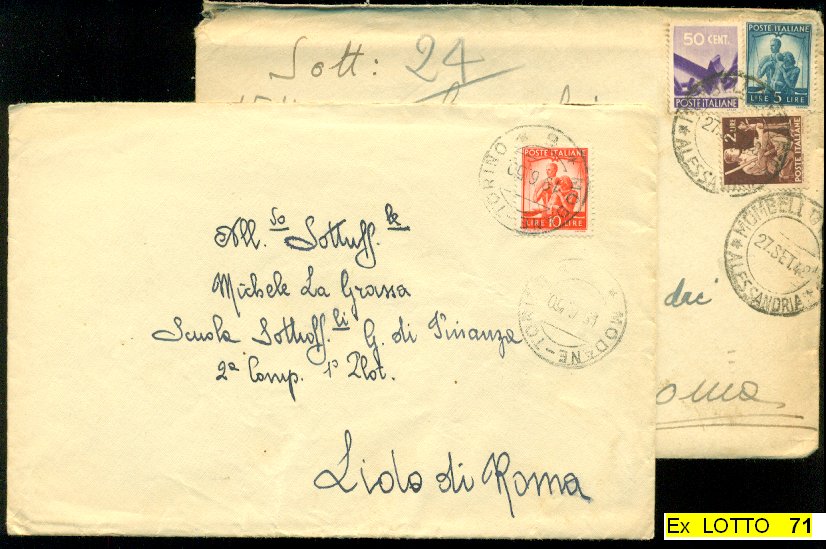 Sott: 24
50 CENT.
POSTE ITALIANE
POSTE ITALIANE
LIRE 5 LIRE
2 LIRE
POSTE ITALIANE
* ALESSANDRIA
* MOMBELLO
27. SET. 48
* ALESSANDRIA *
POSTE ITALIANE
LIRE 10 LIRE
TORINO *
* MODANE-TORI
All.so Sottuff.le
Michele La Grassa
Scuola Sottoff.li G. di Finanza
2a Comp. 1o Plot.
Lido di Roma
dei
oma
Ex LOTTO 71